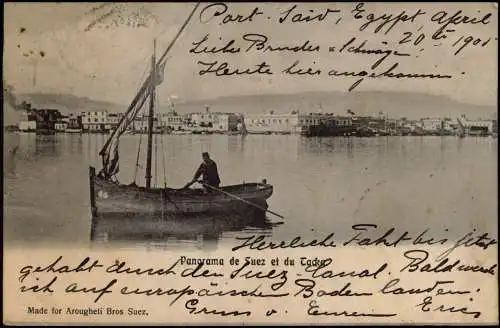 Port Said, Egypt April
20te 1905
Liebe Bruder & Schwäge
Heute hier angekommen
Panorama de Suez et du
Herrliche Fahrt bis jetzt
gehabt durch den Suez-Canal. Bald werde
ich auf europäischen Boden landen.
Gruss v. Euren Eric
Made for Arougheti Bros Suez.